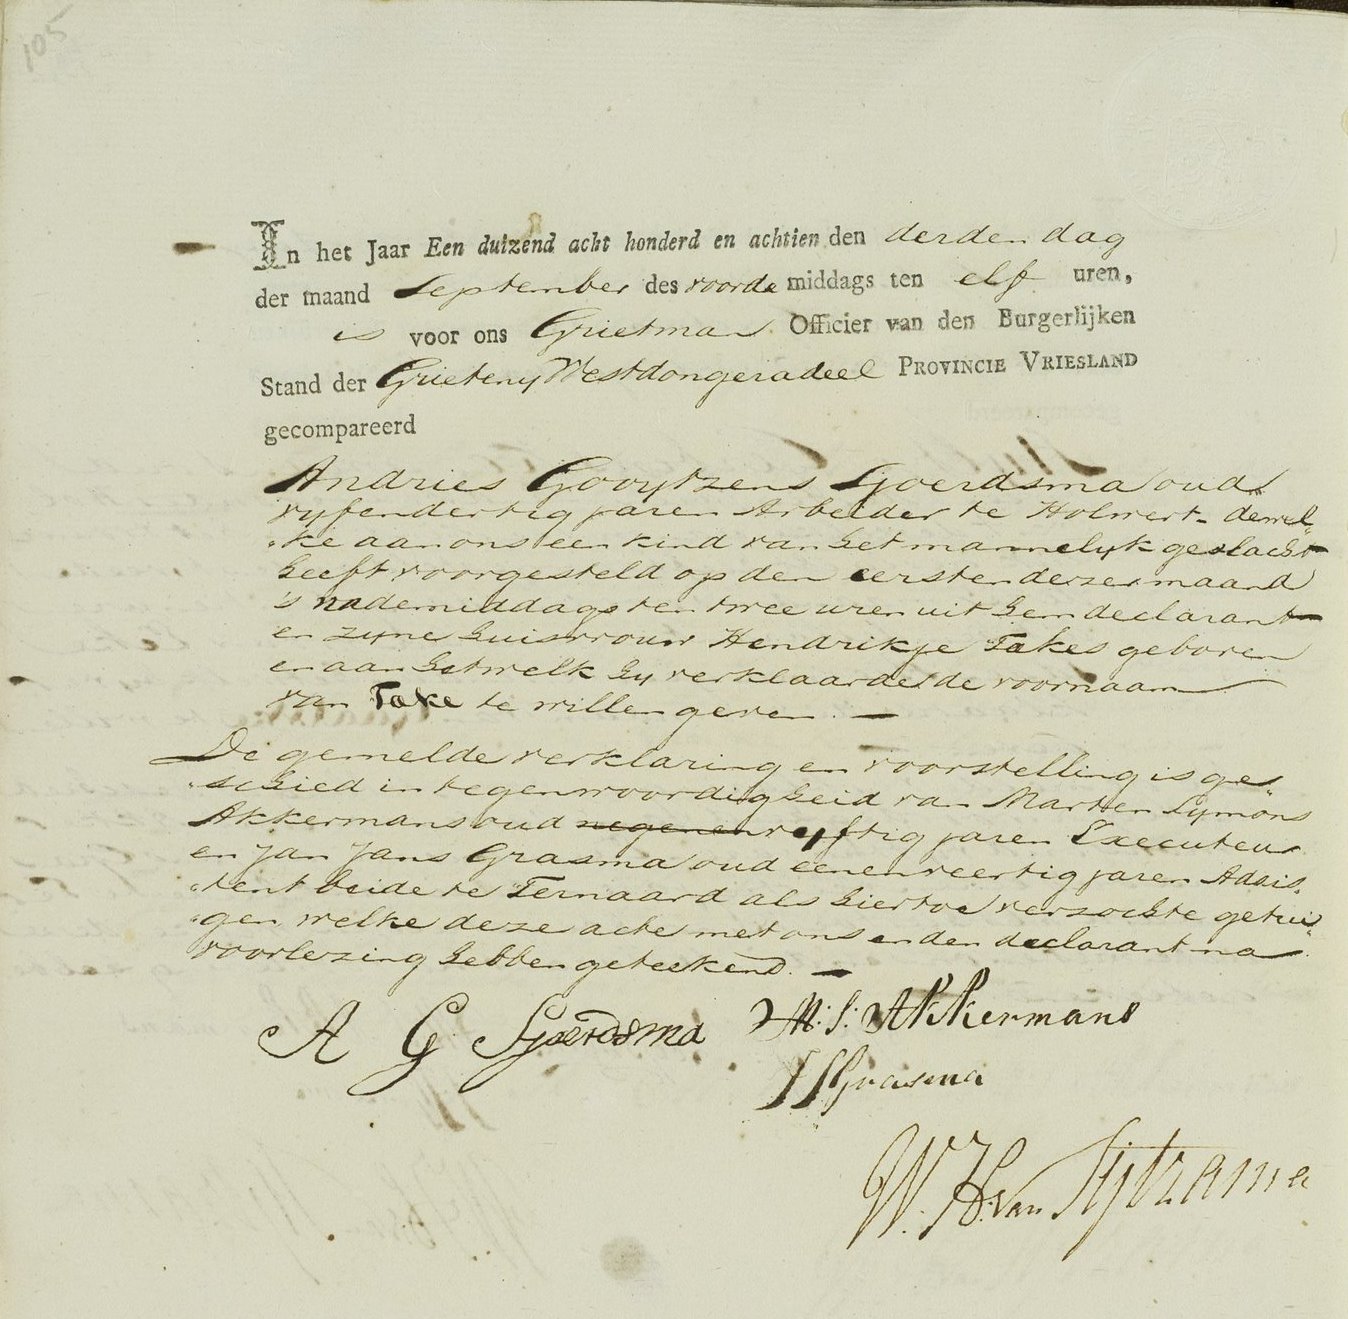 105
In het Jaar Een duizend acht honderd en achtien den derden dag
der maand September des voorde middags ten elf uren,
is voor ons Grietman Officier van den Burgerlijken
Stand der Grieteny Westdongeradeel PROVINCIE VRIESLAND
gecompareerd
Andries Gooytzens Sjoerdsma oud
vyfendertig jaren Arbeider te Holwert - dewel„
„ke aan ons een kind van het mannelyk geslacht
heeft voorgesteld op den eersten dezer maand
's nademiddags ten twee uren uit hem declarant
en zyne huisvrouw Hendrikje Takes geboren
en aan hetwelk hy verklaarde de voornaam
van Take te willen geven. —
De gemelde verklaring en voorstelling is ge„
„schied in tegenwoordigheid van Marten Symons
Akkermans oud negenen vyftig jaren Executeur
en Jan Jans Grasma oud eenenveertig jaren Adsis„
„tent beide te Ternaard als hiertoe verzochte getui„
„gen welke deze acte met ons en den declarant na
voorlezing hebben geteekend. —
A G Sjoerdsma M: S: Akkermans
JJGrasma
W. H. van Sytzama